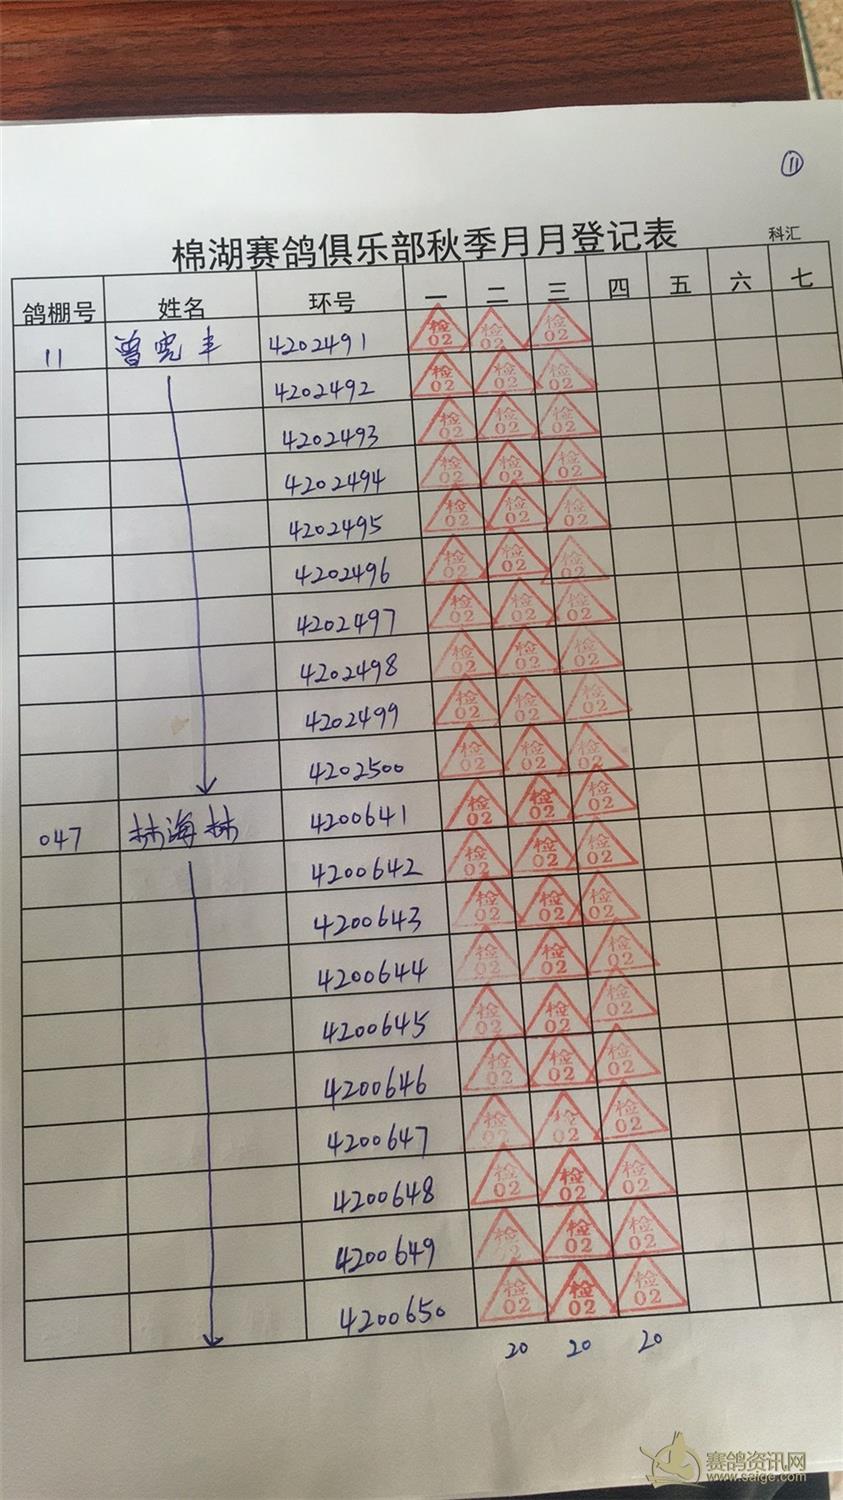 ⑪
棉湖赛鸽俱乐部秋季月月登记表 科汇
鸽棚号 姓名 环号 一 二 三 四 五 六 七
11 曾宪丰 4202491 检02 检02 检02
4202492 检02 检02 检02
4202493 检02 检02 检02
4202494 检02 检02 检02
4202495 检02 检02 检02
4202496 检02 检02 检02
4202497 检02 检02 检02
4202498 检02 检02 检02
4202499 检02 检02 检02
4202500 检02 检02 检02
047 林海林 4200641 检02 检02 检02
4200642 检02 检02 检02
4200643 检02 检02 检02
4200644 检02 检02 检02
4200645 检02 检02 检02
4200646 检02 检02 检02
4200647 检02 检02 检02
4200648 检02 检02 检02
4200649 检02 检02 检02
4200650 检02 检02 检02
20 20 20
赛鸽资讯网
www.saige.com